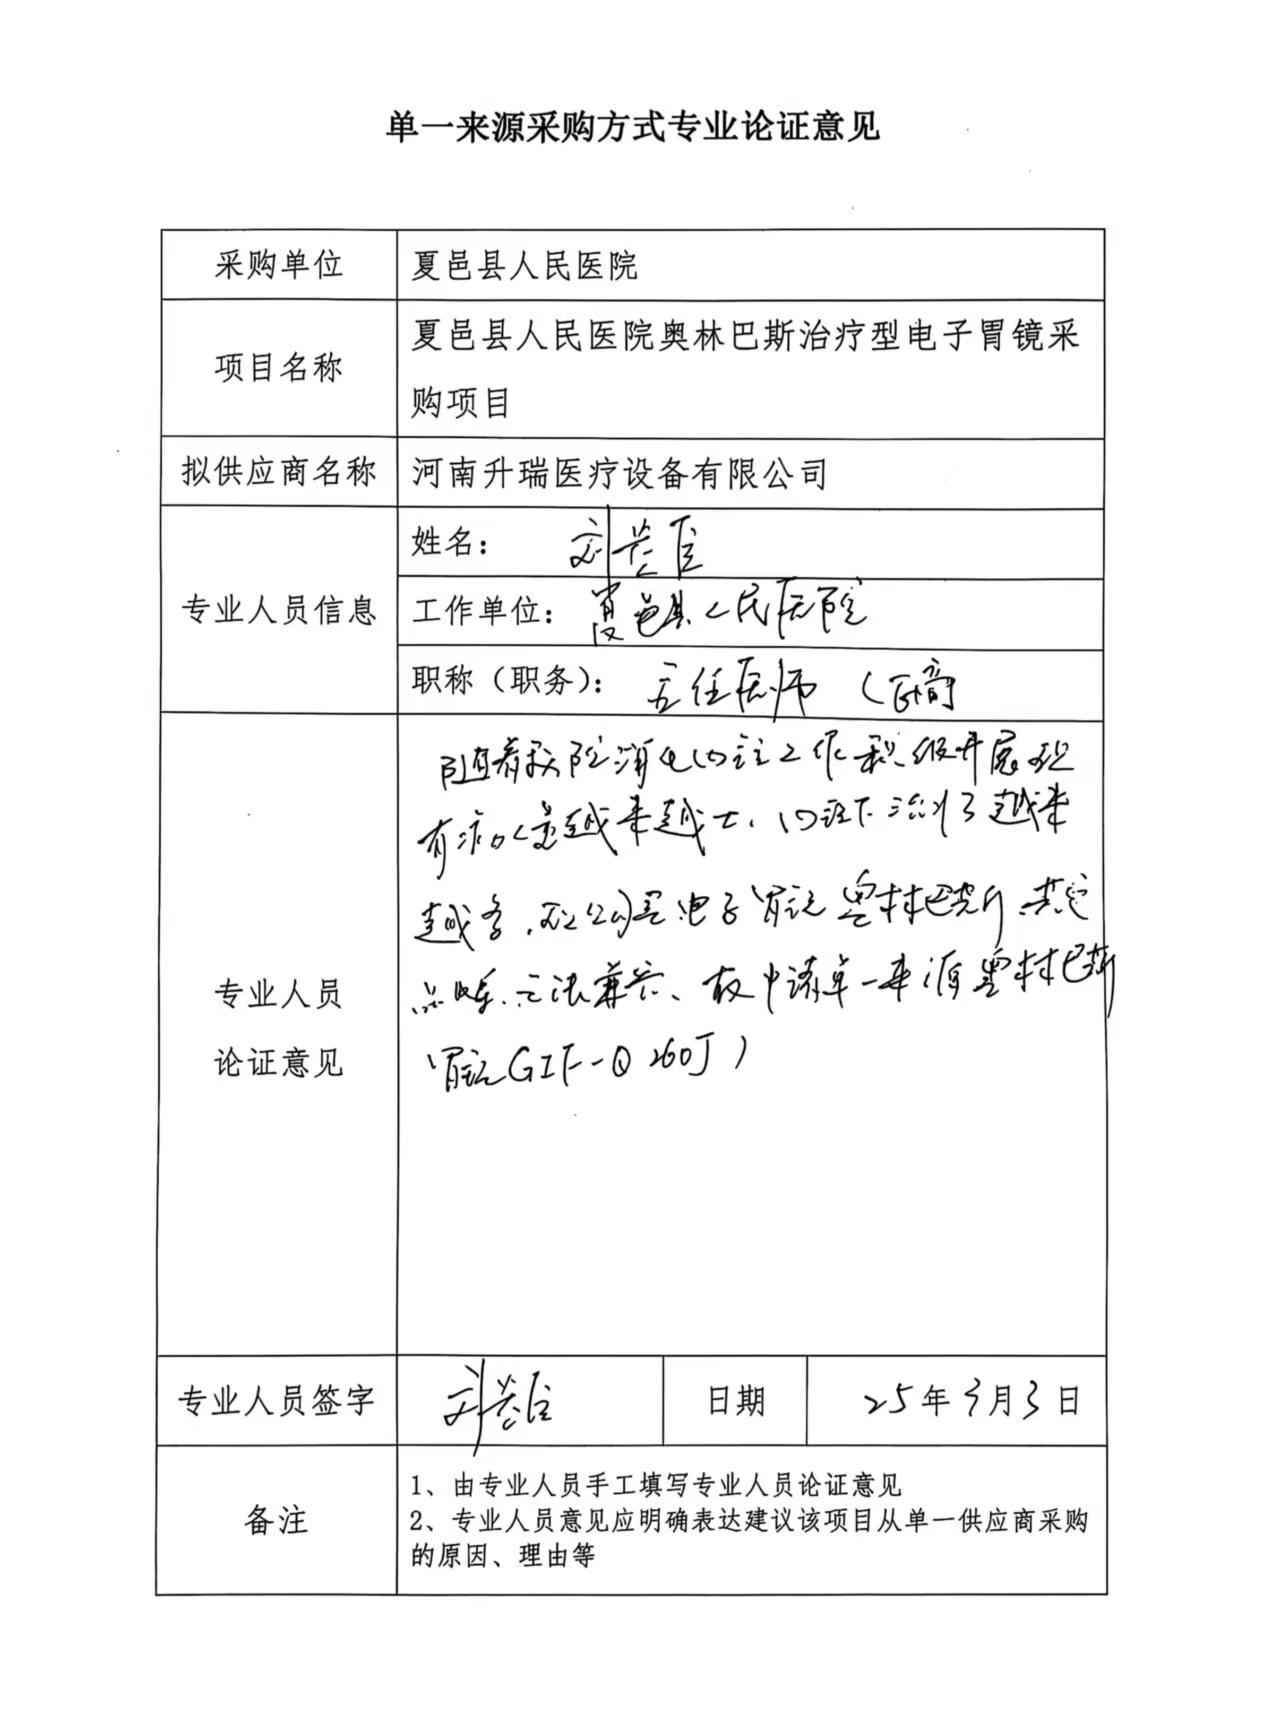 单一来源采购方式专业论证意见
采购单位 夏邑县人民医院
项目名称 夏邑县人民医院奥林巴斯治疗型电子胃镜采
购项目
拟供应商名称 河南升瑞医疗设备有限公司
专业人员信息
姓名： 刘
工作单位： 夏邑县人民医院
职称（职务）： 主任医师
专业人员
论证意见
随着我院消化内镜工作积极开展 现
有病人量越来越大、内镜下治疗越来
越多， 电子胃镜奥林巴斯、其它
品牌无法兼容、故申请单一来源奥林巴斯
胃镜GIF-Q260J）
专业人员签字 刘 日期 25年3月3日
备注
1、由专业人员手工填写专业人员论证意见
2、专业人员意见应明确表达建议该项目从单一供应商采购
的原因、理由等